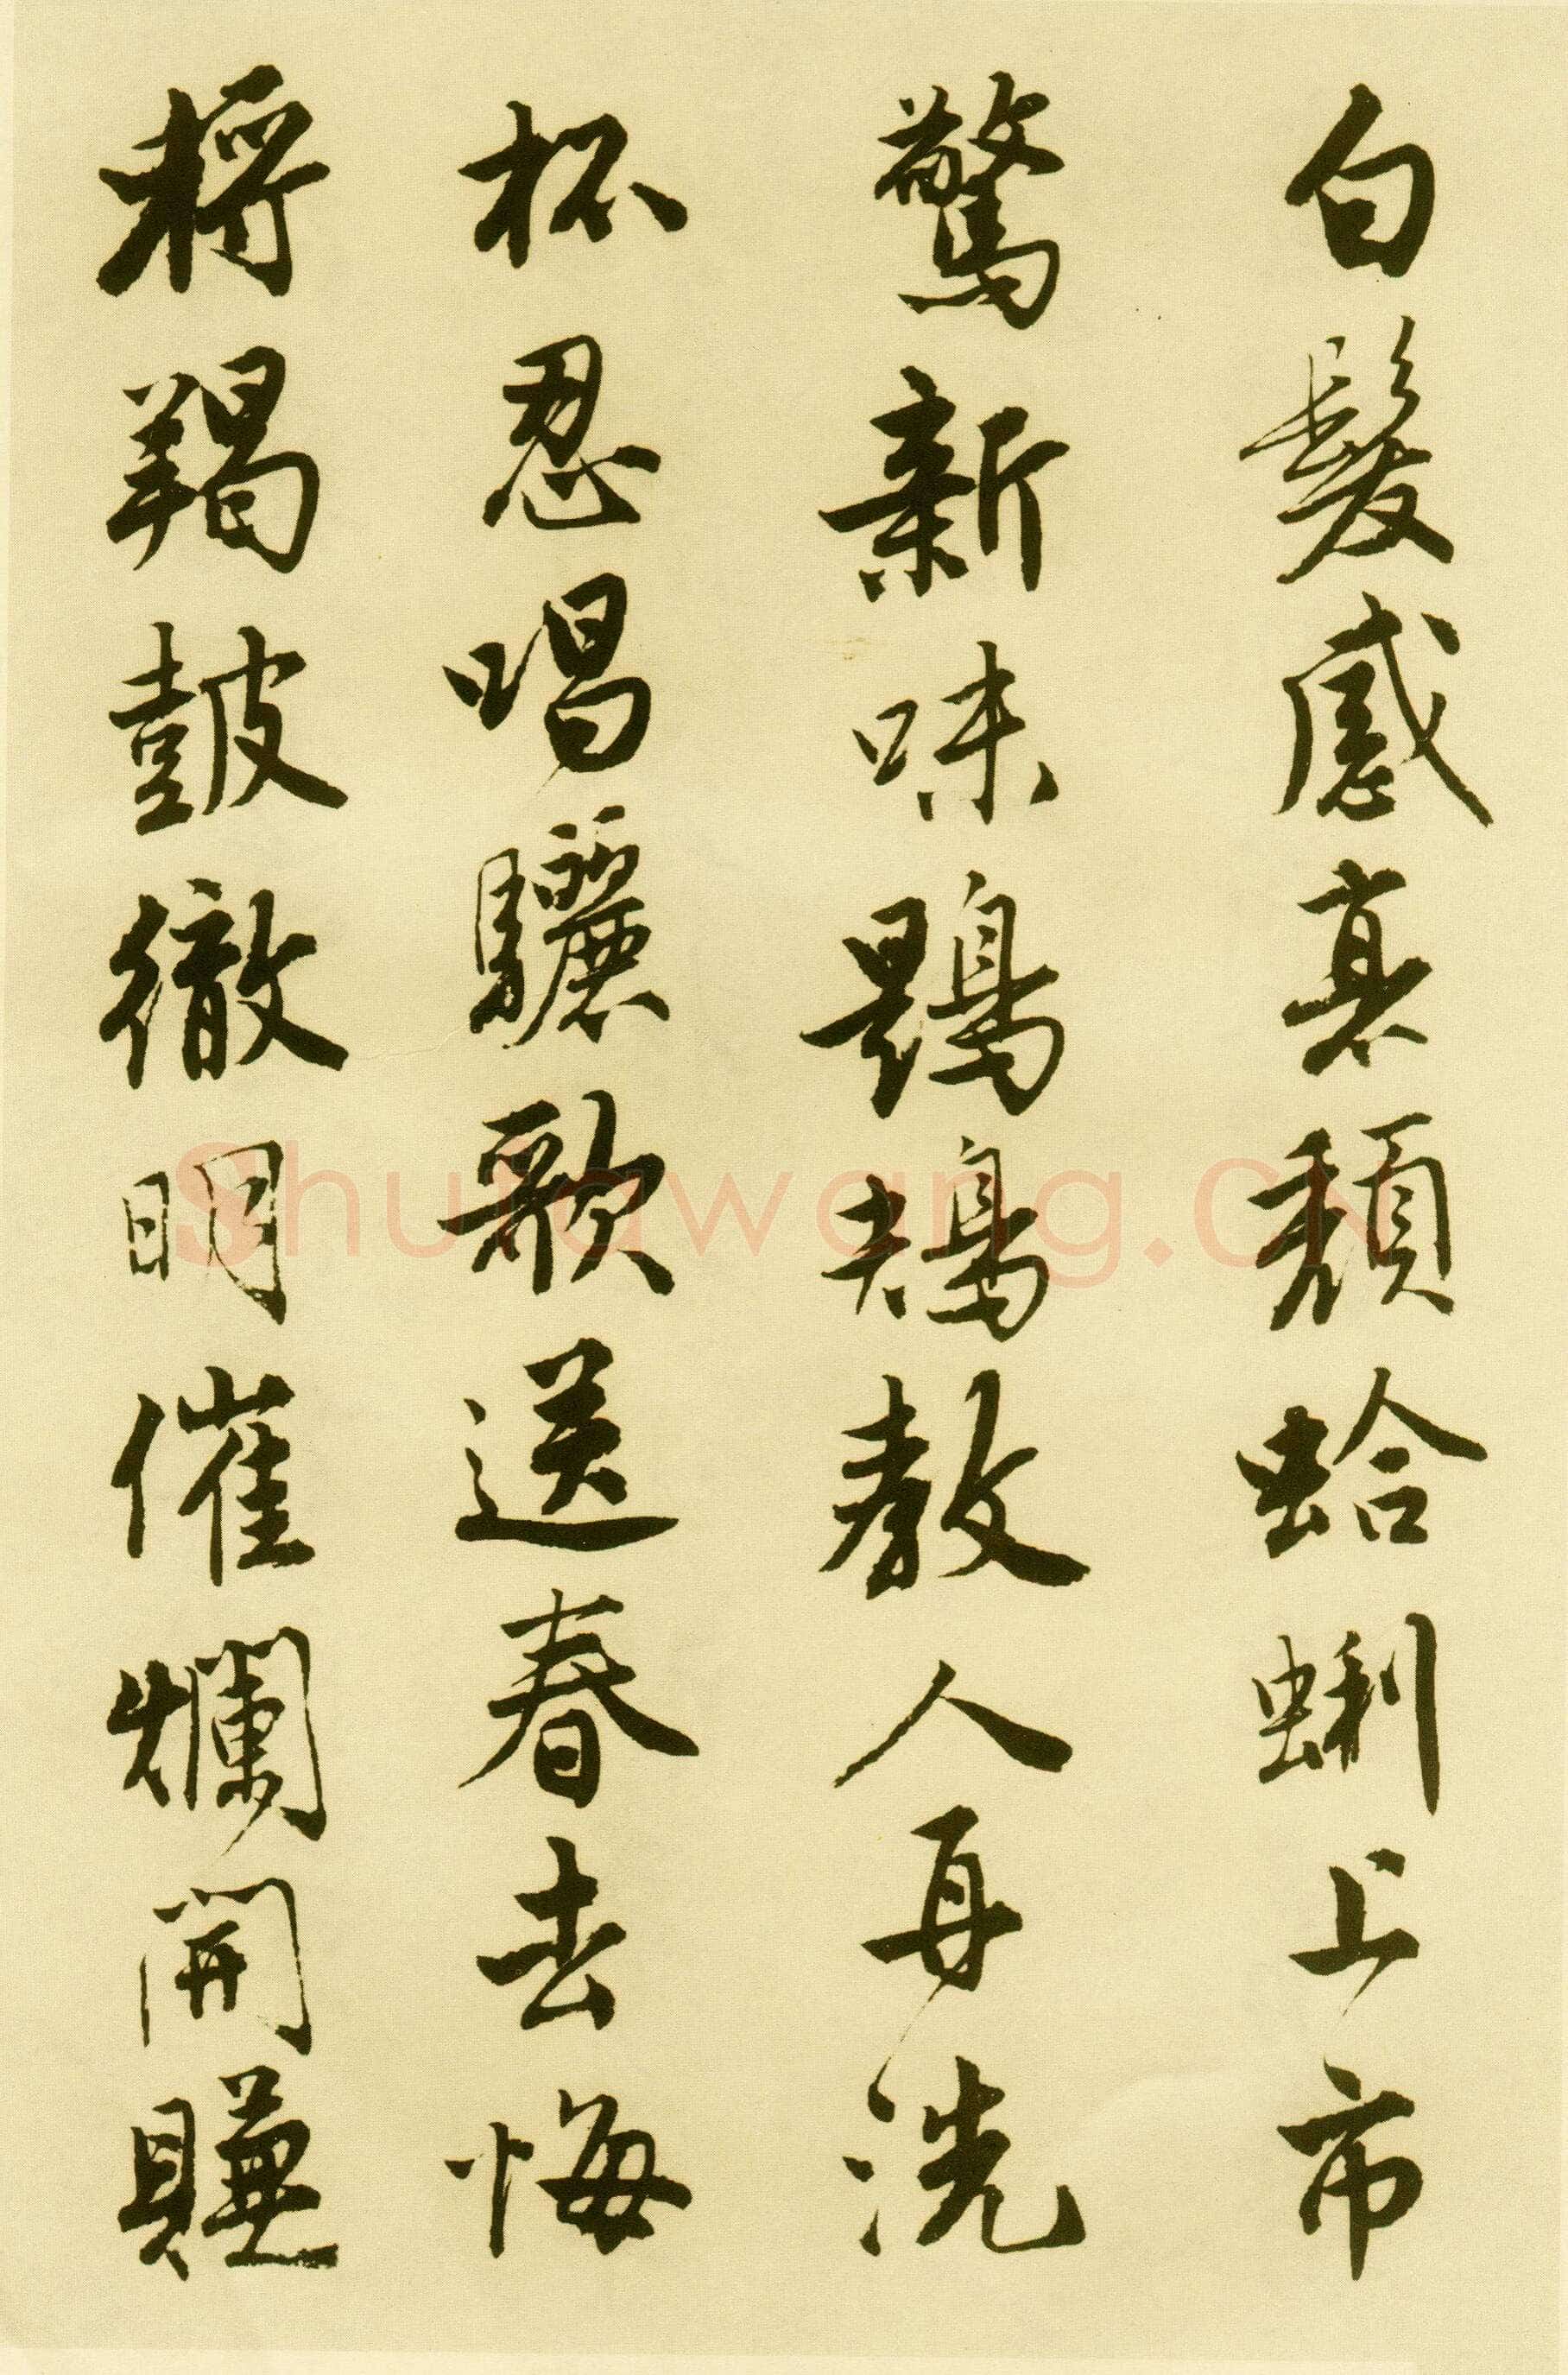 白髮感衰頹蛤蜊上市
驚新味鶗鴂教人再洗
杯忍唱驪歌送春去悔
將羯鼓徹明催爛開賺
Shufawang.CN